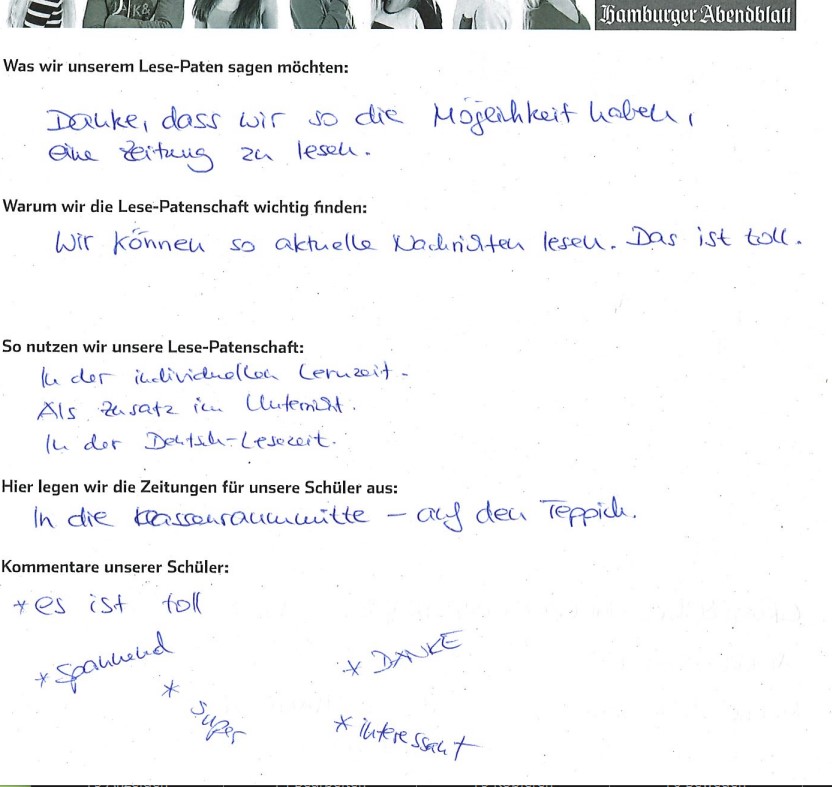 Hamburger Abendblatt
Was wir unserem Lese-Paten sagen möchten:
Danke, dass wir so die Möglichkeit haben,
eine Zeitung zu lesen.
Warum wir die Lese-Patenschaft wichtig finden:
Wir können so aktuelle Nachrichten lesen. Das ist toll.
So nutzen wir unsere Lese-Patenschaft:
In der individuellen Lernzeit.
Als Zusatz im Unterricht.
In der Deutsch-Lesezeit.
Hier legen wir die Zeitungen für unsere Schüler aus:
In die Klassenraummitte – auf den Teppich.
Kommentare unserer Schüler:
* es ist toll
* Spannend
* DANKE
* super
* interessant